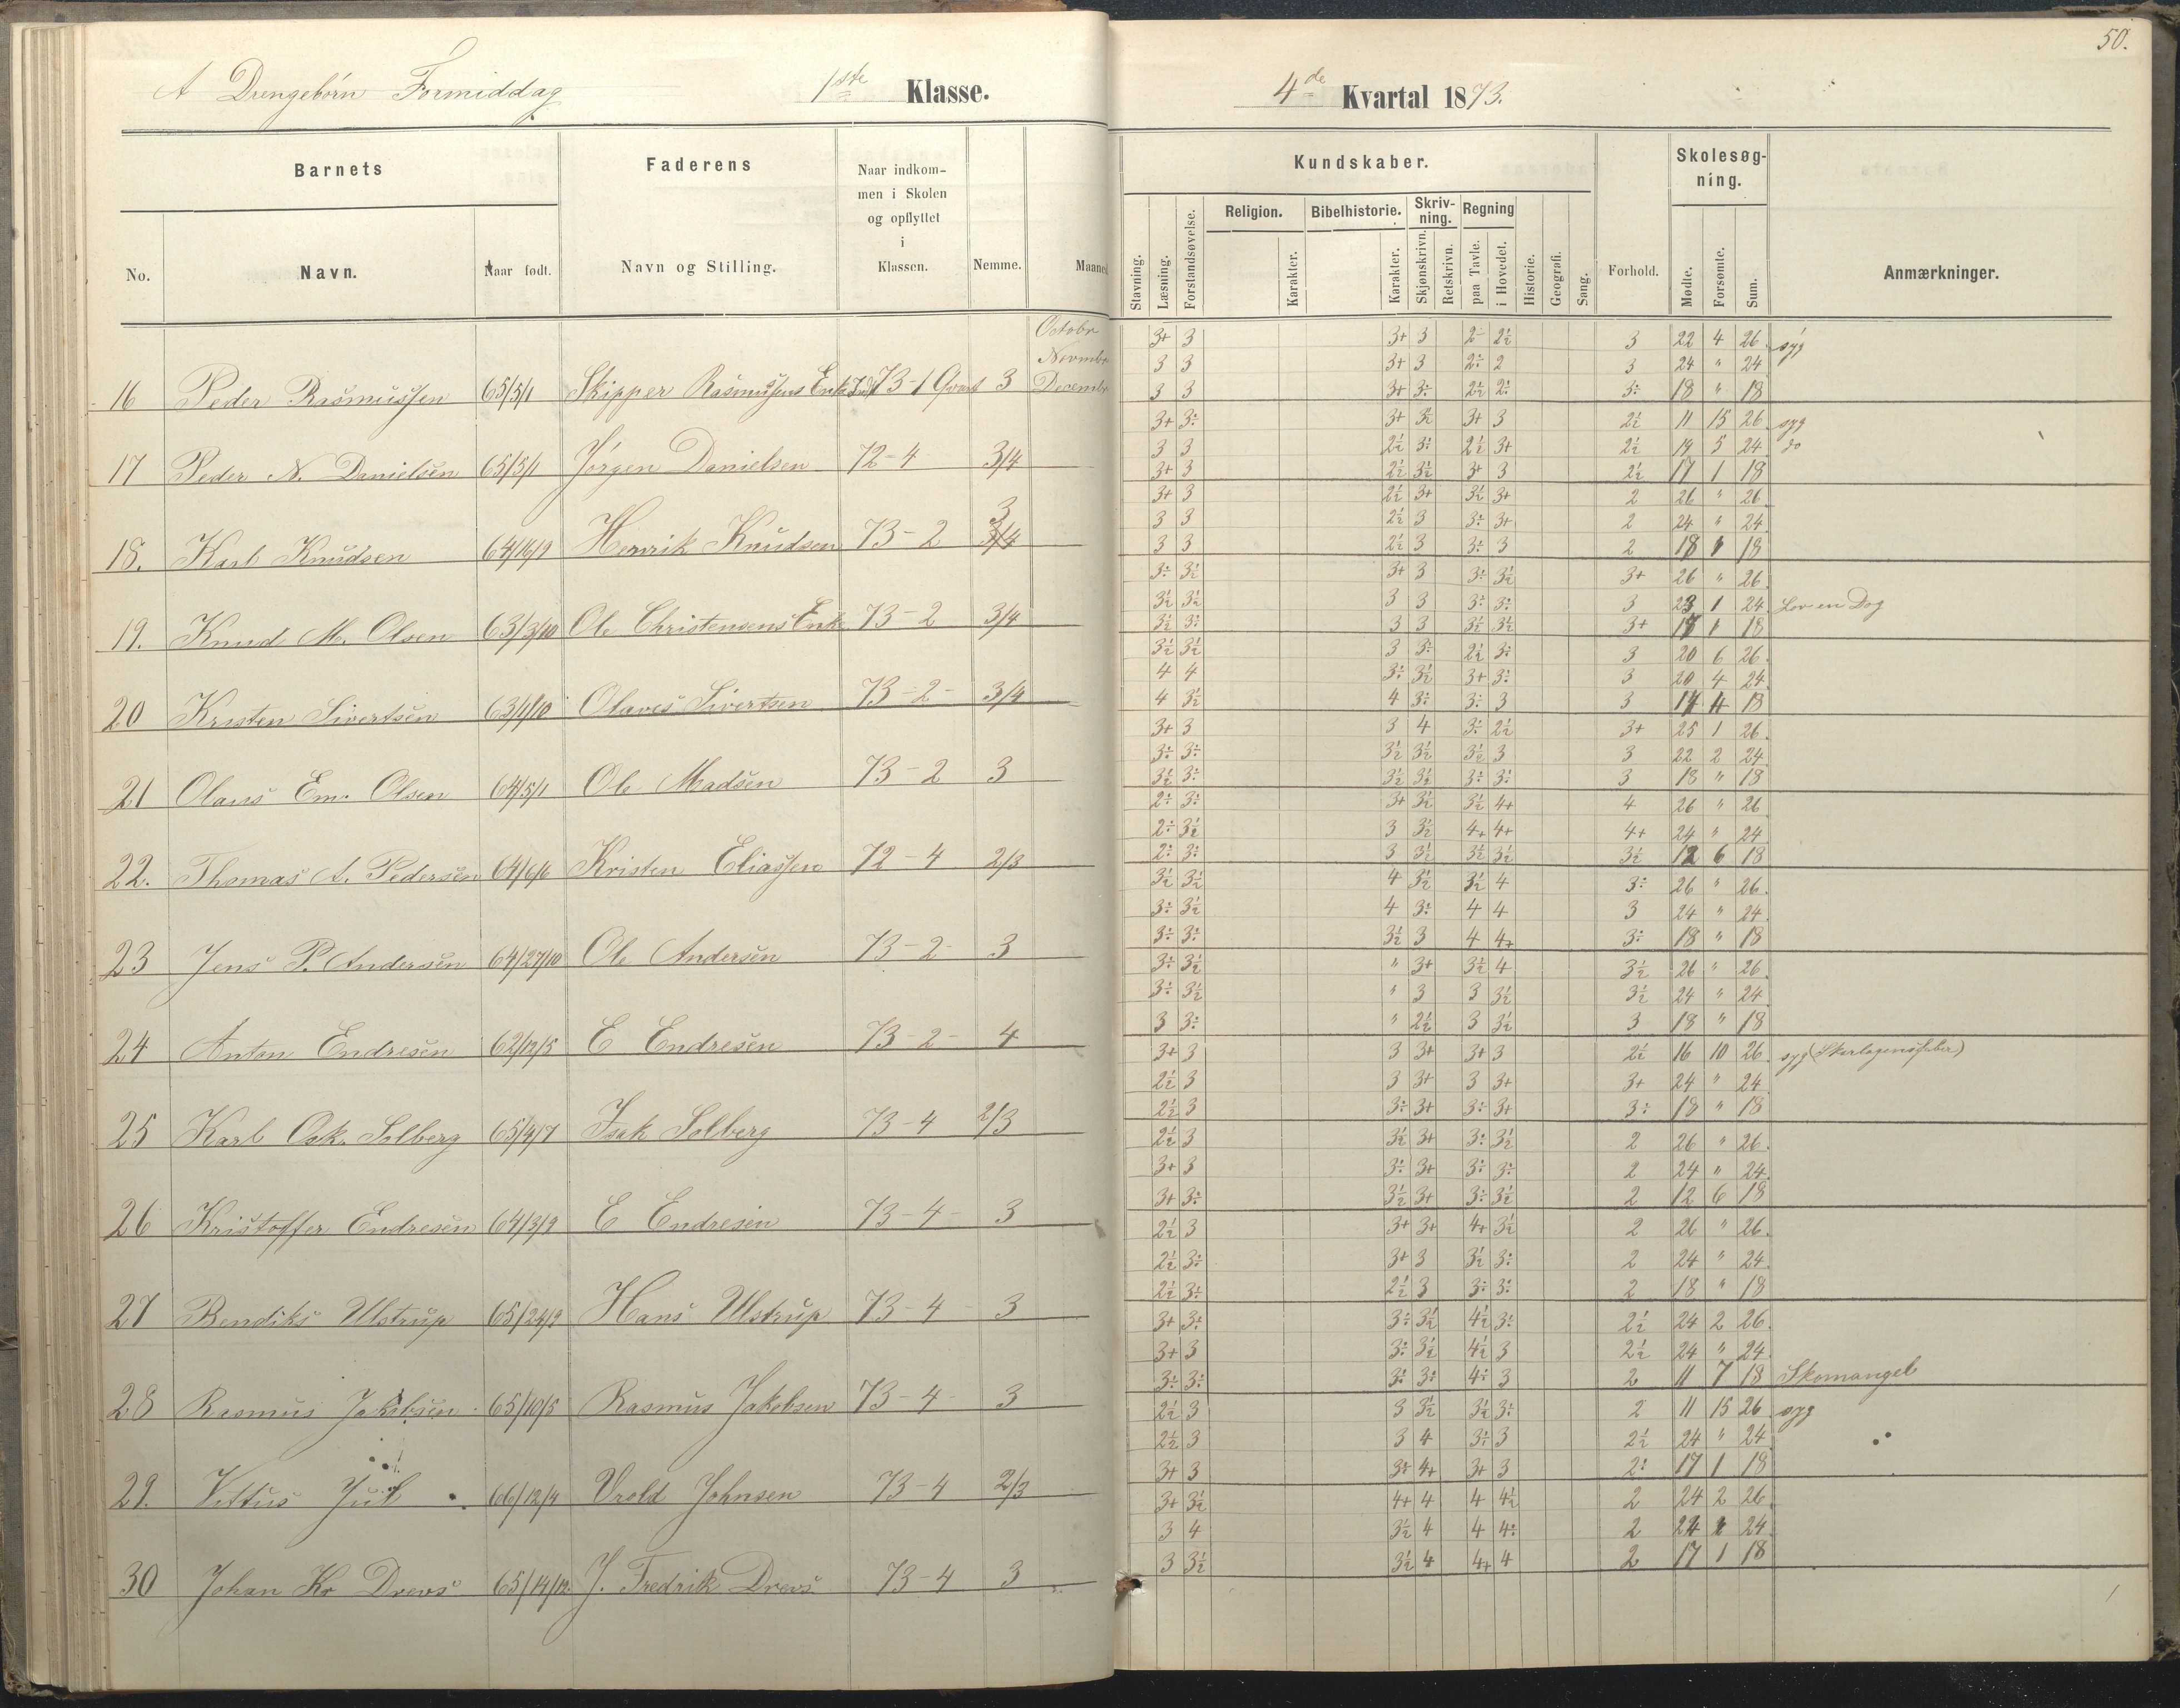 50.
A Drengebörn Formiddag 1ste Klasse. 4de Kvartal 1873.
Barnets Faderens Naar indkom- men i Skolen og opflyttet i Klassen. Nemme. Maaned Kundskaber. Forhold. Skolesøg- ning. Anmærkninger.
No. Navn. Naar født. Navn og Stilling. Stavning. Læsning. Forstandsøvelse. Religion. Karakter. Bibelhistorie. Karakter. Skriv- ning. Skjønskrivn. Retskrivn. Regning paa Tavle. i Hovedet. Historie. Geografi. Sang. Mødte. Forsømte. Sum.
Octobr 3+ 3 3+ 3 2- 2½ 3 22 4 26 syg
Novmbr 3 3 3+ 3 2÷ 2 3 24 " 24
16 Peder Rasmussen 65/5/1 Skipper Rasmussens Enke 73-1 Qvart 3 Decembr 3 3 3+ 3÷ 2½ 2÷ 3÷ 18 " 18
3+ 3÷ 3+ 3½ 3+ 3 2½ 11 15 26 syg
3 3 2½ 3÷ 2½ 3+ 2½ 19 5 24 do
17 Peder N. Danielsen 65/5/1 Jörgen Danielsen 72-4 3/4 3+ 3 2½ 3½ 3+ 3 2½ 17 1 18
3+ 3 2½ 3+ 3½ 3+ 2 26 " 26
3 3 2½ 3 3÷ 3+ 2 24 " 24
18. Karl Knudsen 64/16/9 Henrik Knudsen 73-2 3 3 3 2½ 3 3÷ 3 2 18 18
3÷ 3½ 3+ 3 3÷ 3½ 3+ 26 " 26
3½ 3½ 3 3 3÷ 3÷ 3 23 1 24 Lov en Dag
19. Knud M. Olsen 63/3/10 Ole Christensens Enke 73-2 3/4 3½ 3÷ 3 3 3½ 3½ 3+ 17 1 18
3½ 3½ 3 3÷ 2½ 3÷ 3 20 6 26
4 4 3÷ 3½ 3+ 3÷ 3 20 4 24
20 Kristen Sivertsen 63/1/10 Olaves Sivertsen 73-2- 3/4 4 3½ 4 3÷ 3÷ 3 3 14 4 18
3+ 3 3 4 3÷ 2½ 3+ 25 1 26
3÷ 3÷ 3½ 3½ 3½ 3 3 22 2 24
21 Olaus Em. Olsen 64/5/1 Ole Madsen 73-2 3 3½ 3÷ 3½ 3½ 3÷ 3÷ 3 18 " 18
2÷ 3÷ 3+ 3½ 3½ 4+ 4 26 " 26
2÷ 3½ 3 3½ 4+ 4+ 4+ 24 " 24
22. Thomas A. Pedersen 64/6/6 Kristen Eliassen 72-4 2/3 2÷ 3÷ 3 3½ 3½ 3½ 3½ 12 6 18
3½ 3½ 4 3½ 3½ 4 3÷ 26 " 26
3÷ 3½ 4 3÷ 4 4 3 24 " 24
23 Jens P. Andersen 64/27/10 Ole Andersen 73-2- 3 3÷ 3÷ 3½ 3 4 4+ 3÷ 18 " 18
3÷ 3½ " 3+ 3½ 4 3½ 26 " 26
3÷ 3½ " 3 3 3½ 3½ 24 " 24
24 Anton Endresen 62/12/5 E Endresen 73-2- 4 3 3÷ " 2½ 3 3½ 3 18 " 18
3+ 3 3 3+ 3+ 3 2½ 16 10 26 syg (Skarlagensfeber)
2½ 3 3 3+ 3 3+ 3+ 24 " 24
25 Karl Osk. Solberg 65/4/7 Isak Solberg 73-4 2/3 2½ 3 3÷ 3+ 3÷ 3+ 3÷ 18 " 18
2½ 3 3½ 3+ 3÷ 3½ 2 26 " 26
3+ 3 3÷ 3+ 3÷ 3÷ 2 24 " 24
26 Kristoffer Endresen 64/3/9 E Endresen 73-4- 3 3+ 3÷ 3½ 3+ 3÷ 3½ 2 12 6 18
2½ 3 3+ 3+ 4+ 3½ 2 26 " 26
2½ 3÷ 3+ 3 3½ 3÷ 2 24 " 24
27 Bendiks Ulstrup 65/24/9 Hans Ulstrup 73-4- 3 2½ 3÷ 2½ 3 3÷ 3÷ 2 18 " 18
3+ 3÷ 3÷ 3½ 4½ 3÷ 2½ 24 2 26
3+ 3 3÷ 3½ 4½ 3 2½ 24 " 24
28 Rasmus Jakobsen 65/10/5 Rasmus Jakobsen 73-4- 3 3÷ 3÷ 3÷ 3÷ 4÷ 3 2 11 7 18 Skomangel
2½ 3 3 3½ 3½ 3÷ 2 11 15 26 syg
2½ 3 3 4 3÷ 3 2½ 24 " 24
29. Vittus Jul 66/12/4 Vrold Johnsen 73-4 2/3 3+ 3 3÷ 4+ 3+ 3 2÷ 17 1 18
3+ 3½ 4+ 4 4 4½ 2 24 2 26
3 4 3½ 4 4 4÷ 2 24 24
30 Johan Kr Drevs 65/14/12 J. Fredrik Drevs 73-4 3 3 3½ 3½ 4 4+ 4 2 17 1 18